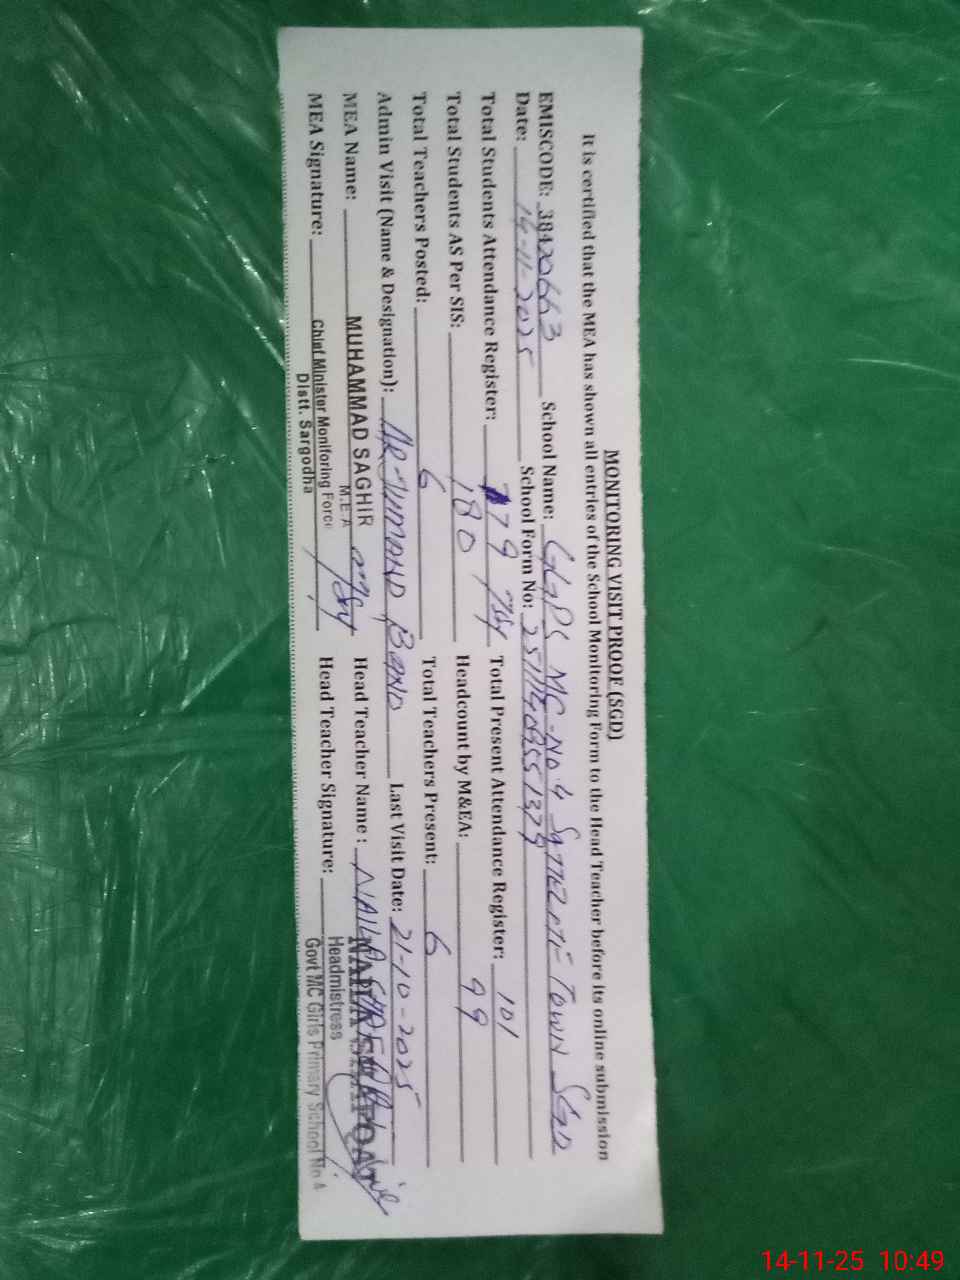 MONITORING VISIT PROOF (SGD)
It is certified that the MEA has shown all entries of the School Monitoring Form to the Head Teacher before its online submission
EMISCODE: 38420663 School Name: GGPS MC-NO 4 TOWN SGD
Date: 14-11-2025 School Form No:
Total Students Attendance Register: 179 Total Present Attendance Register: 101
Total Students AS Per SIS: 180 Headcount by M&EA: 99
Total Teachers Posted: 6 Total Teachers Present: 6
Admin Visit (Name & Designation): BANO Last Visit Date: 21-10-2025
MEA Name: MUHAMMAD SAGHIR Head Teacher Name: NAILA
M.E.A
MEA Signature: Chief Minister Monitoring Force Head Teacher Signature: Headmistress
Distt. Sargodha Govt MC Girls Primary School No 4
14-11-25 10:49